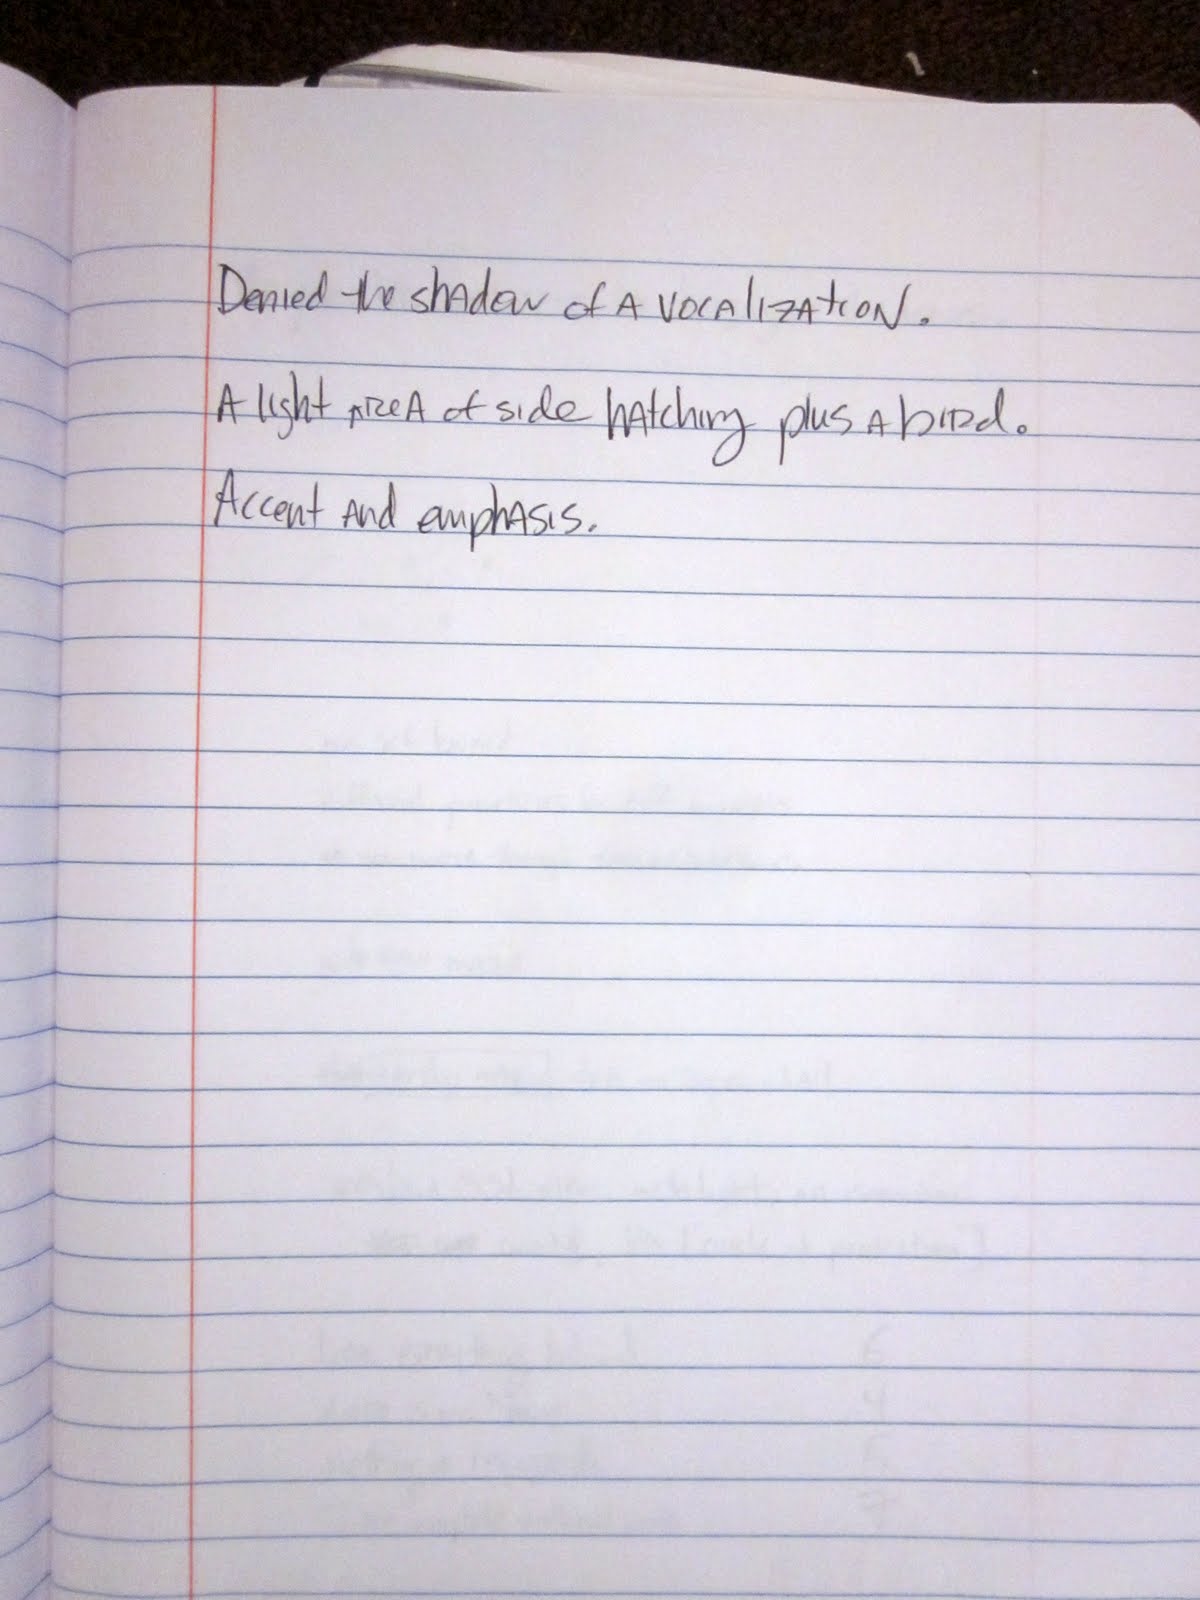 Denied the shadow of a vocalization.
A light area of side hatching plus a bird.
Accent and emphasis.